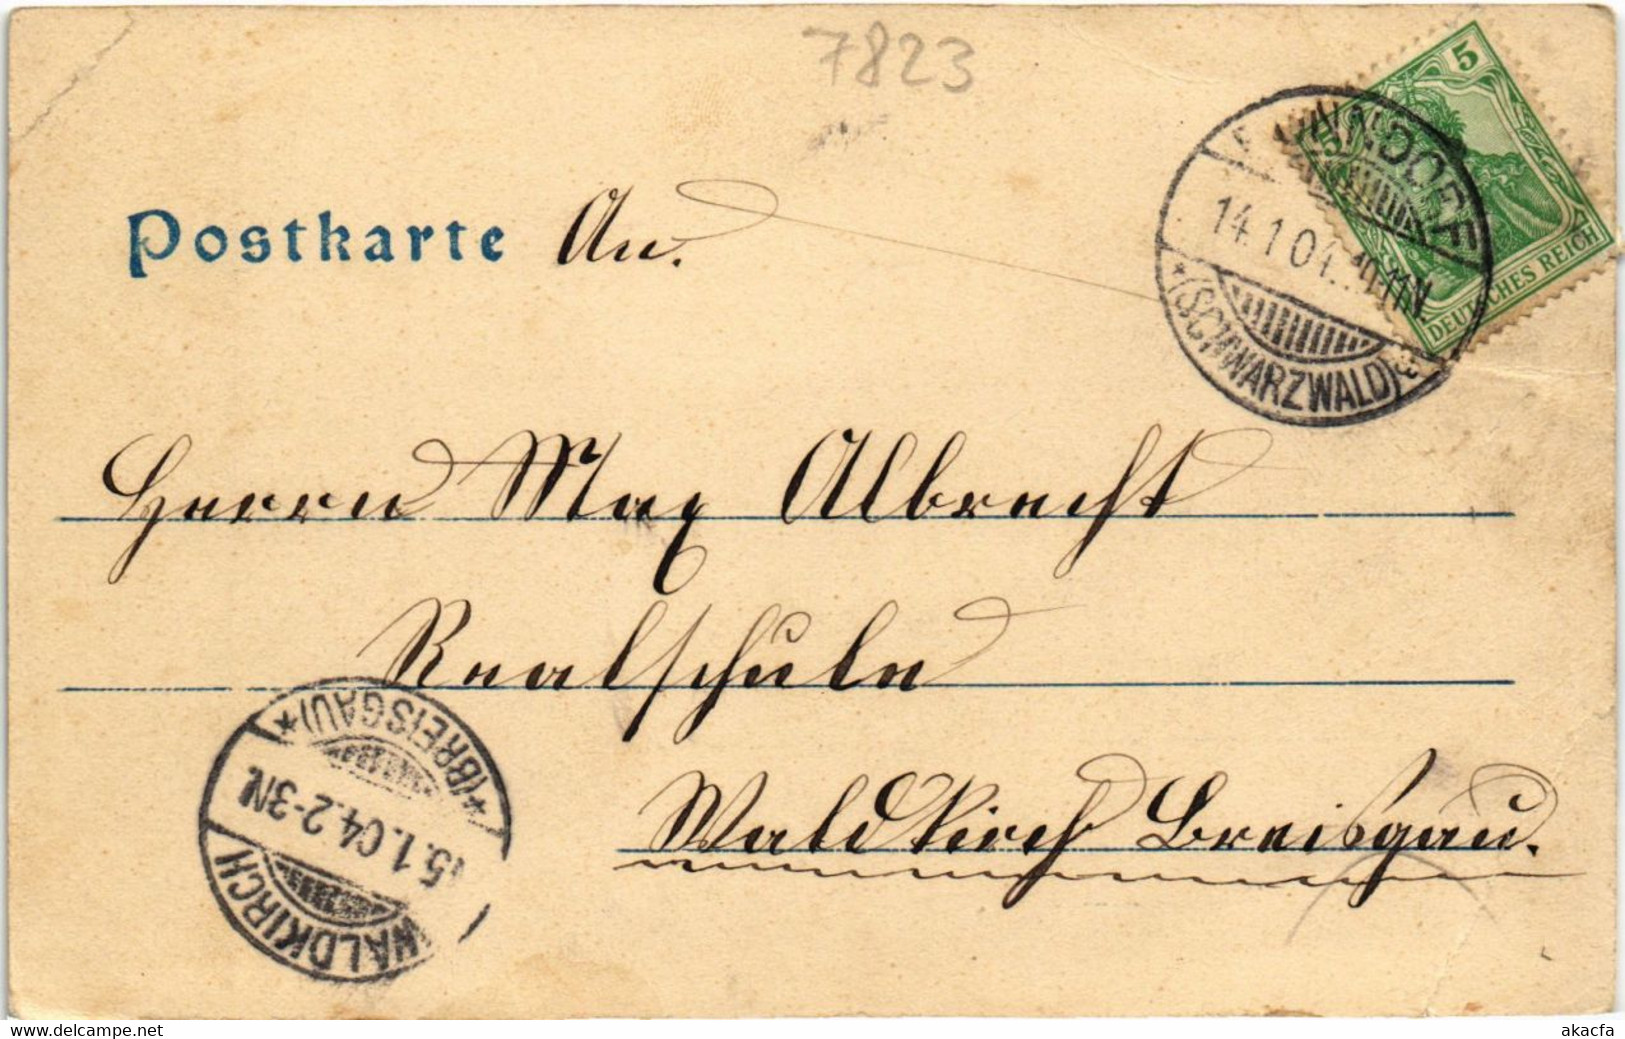 7823
5
DEUTSCHES REICH
14.1.04.
(SCHWARZWALD)
Postkarte An.
Herrn Max Albrecht
Realschule
Waldkirch Breisgau.
*(BREISGAU)*
15.1.04.2-3N
WALDKIRCH
delcampe.net
akacfa